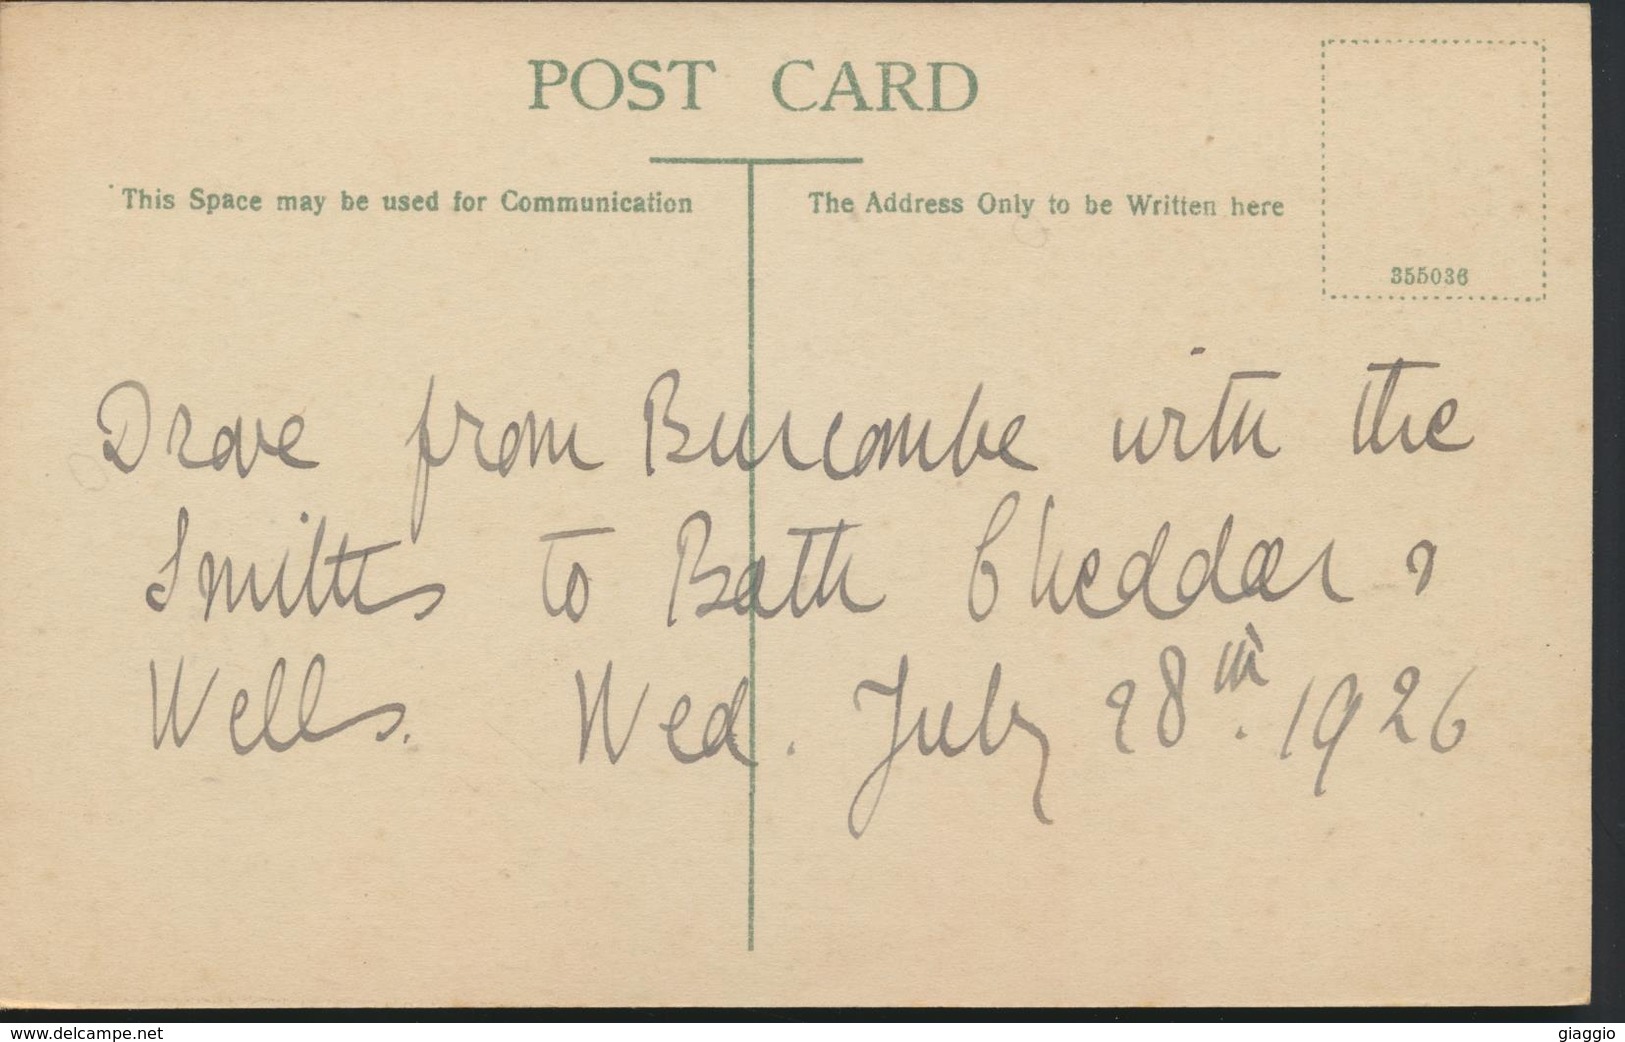 POST CARD
This Space may be used for Communication
The Address Only to be Written here
355036
Drove from Burcombe with the
Smiths to Bath Cheddar &
Wells. Wed. July 28th. 1926
www.delcampe.net
giaggio